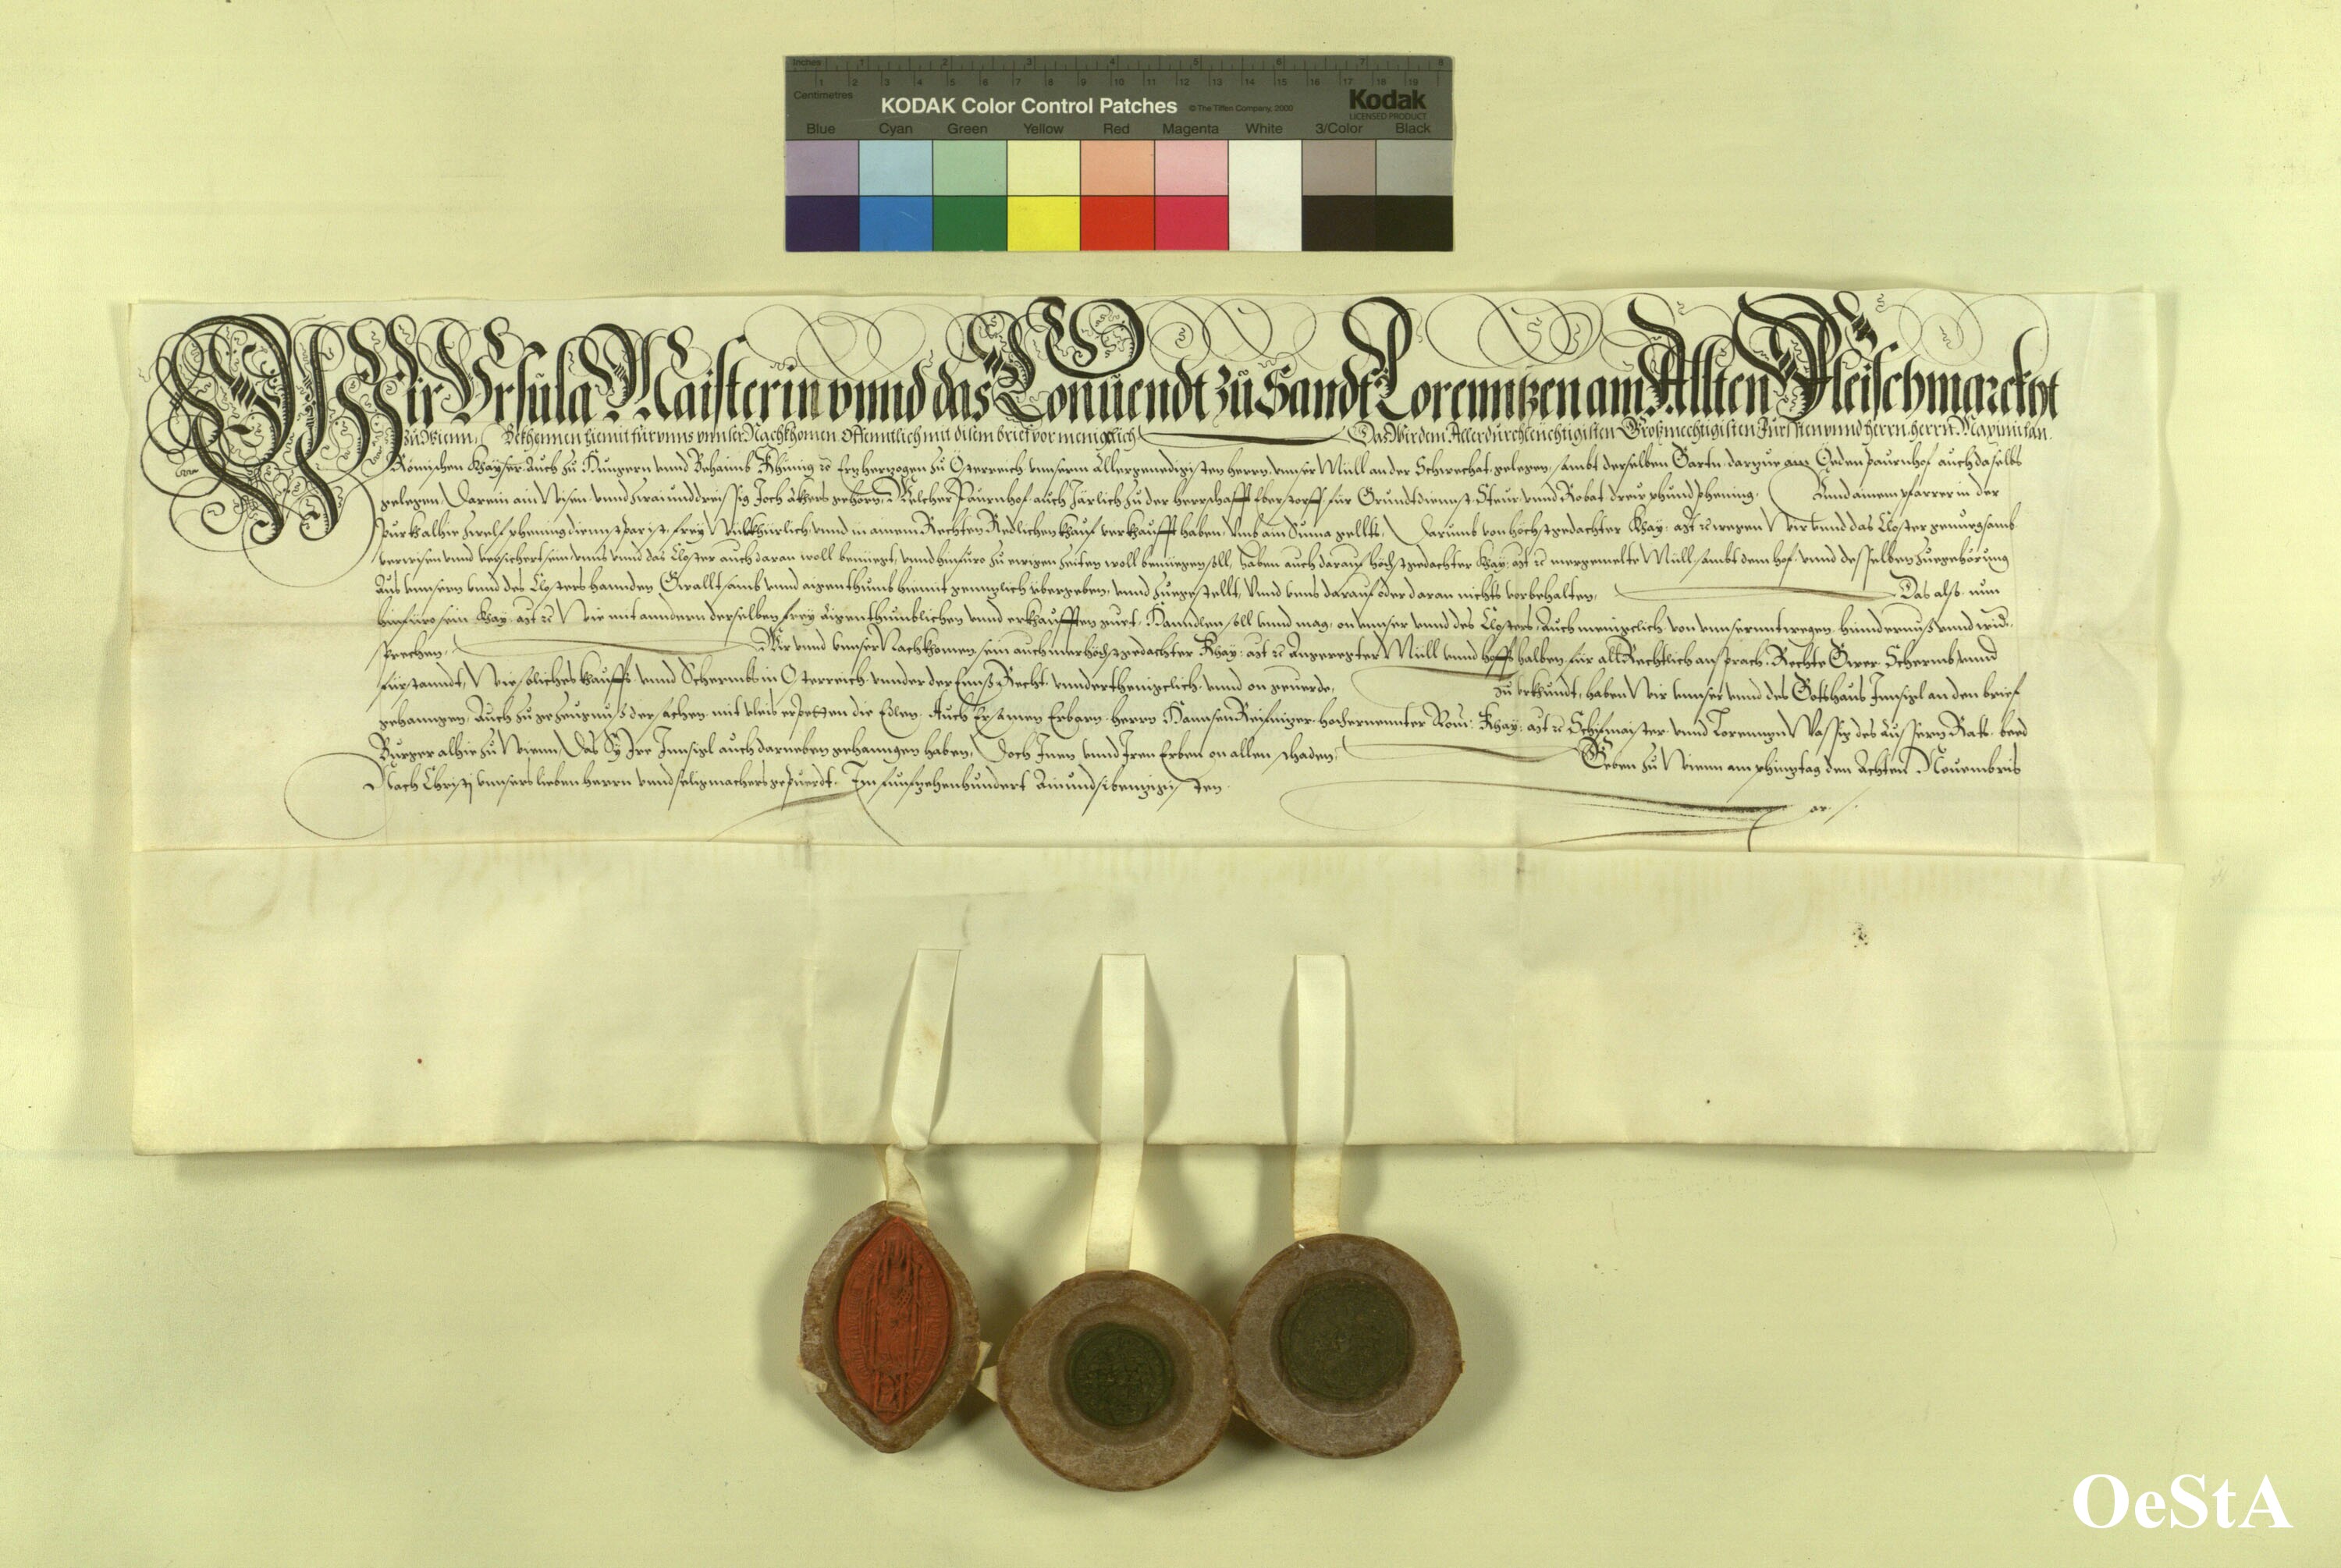 Inches 1 2 3 4 5 6 7 8
1 2 3 4 5 6 7 8 9 10 11 12 13 14 15 16 17 18 19
Centimetres
KODAK Color Control Patches © The Tiffen Company, 2000 Kodak
LICENSED PRODUCT
Blue Cyan Green Yellow Red Magenta White 3/Color Black
Wir Vrsula Maisterin vnnd das Conuendt zu Sandt Lorenntzen am Allten Fleischmarckht
zu Wienn, Bekhennen hiemit für vnns vnnser Nachkhomen offenntlich mit disem brief vor menigclich Das wir dem Allerdurchleüchtigisten Großmechtigisten Fürsten vnnd herrn herrn Maximilian
Römischen Khayser Auch zu Hungern vnnd Behaimb Khünig ꝛc Ertzherzogen zu Österreich vnnserm Allergenedigisten herrn, vnnser Müll an der Schwechat gelegen, sambt derselben Garttn, darzue ain Öeden Paurnhof auch daselbs
gelegen, Darein ain Wisen vnnd zwaiunddreissig Joch äkhers gehörn, Welcher Paurnhof auch Järlich zu der herrschafft Eberstorff für Grundtdiennst, Steur vnnd Robat, dreu phund phening, Vnnd ainem pfarrer in der
Purkh alhie zwelf phening dienstpar ist, frey Wilkhürlich vnnd in ainem Rechten Redlichen khauf verkhaufft haben, Vmb ain Suma gellts, Darumb von höchstgedachter Khay: Mt ꝛc wegen Wir vnnd das Closter genuegsamb
verwisen vnnd versichert sein, vnns vnnd das Closter auch daran woll beniegt, vnnd hinfüro zu ewigen zeiten woll beniegen soll, haben auch darauf höchstgedachter Khay: Mt ꝛc mergemelte Müll, sambt dem hof, vnnd desselben zuegehörung
Aus vnnsern vnnd des Closters hannden Gwalltsamb vnnd aigenthumb hiemit genntzlich übergeben, vnnd zuegestellt, Vnnd vnns darauf oder daran nichts vorbehalten, Das also nun
hinfüro sein Khay: Mt ꝛc Wie mit anndern derselben frey Aigenthumblichen vnnd erkhaufften guet, Hanndlen soll vnnd mag, on vnnser vnnd des Closters, Auch menigclich von vnnserntwegen, hindernuß vnnd wid-
sprechen, Wir vnnd vnnser Nachkhomen, sein auch mer höchstgedachter Khay: Mt ꝛc Angeregter Müll vnnd hoffs halben, für all Rechtlich ansprach, Rechte Gwer, Schermb, vnnd
fürstanndt, Wie solliches khauffs vnnd Schermbs in Österreich vnnder der Ennß Recht, vnnderthenigclich vnnd on geuerde, Zu vrkhundt, haben Wir vnnser vnnd des Gottshaus Innsigl an den brief
gehanngen, Auch zu gezeugnuß der sachen, mit vleis erpetten die Edlen, Auch Ersamen Erbarn herrn Hannsen hochernennter Röm: Khay: Mt ꝛc Schifmaister, vnnd Lorenntzn des Aussern Rats beed
Burger alhie zu Wienn, Das Sy Ire Innsigl auch darneben gehanngen haben, Doch Inen vnnd Iren Erben on allen schaden, Geben zu Wienn am phintztag den Achten Nouembris
Nach Christj vnnsers lieben herrn vnnd seligmachers gepuerdt, Im funfzehenhundert Ainundsibenzigisten
OeStA